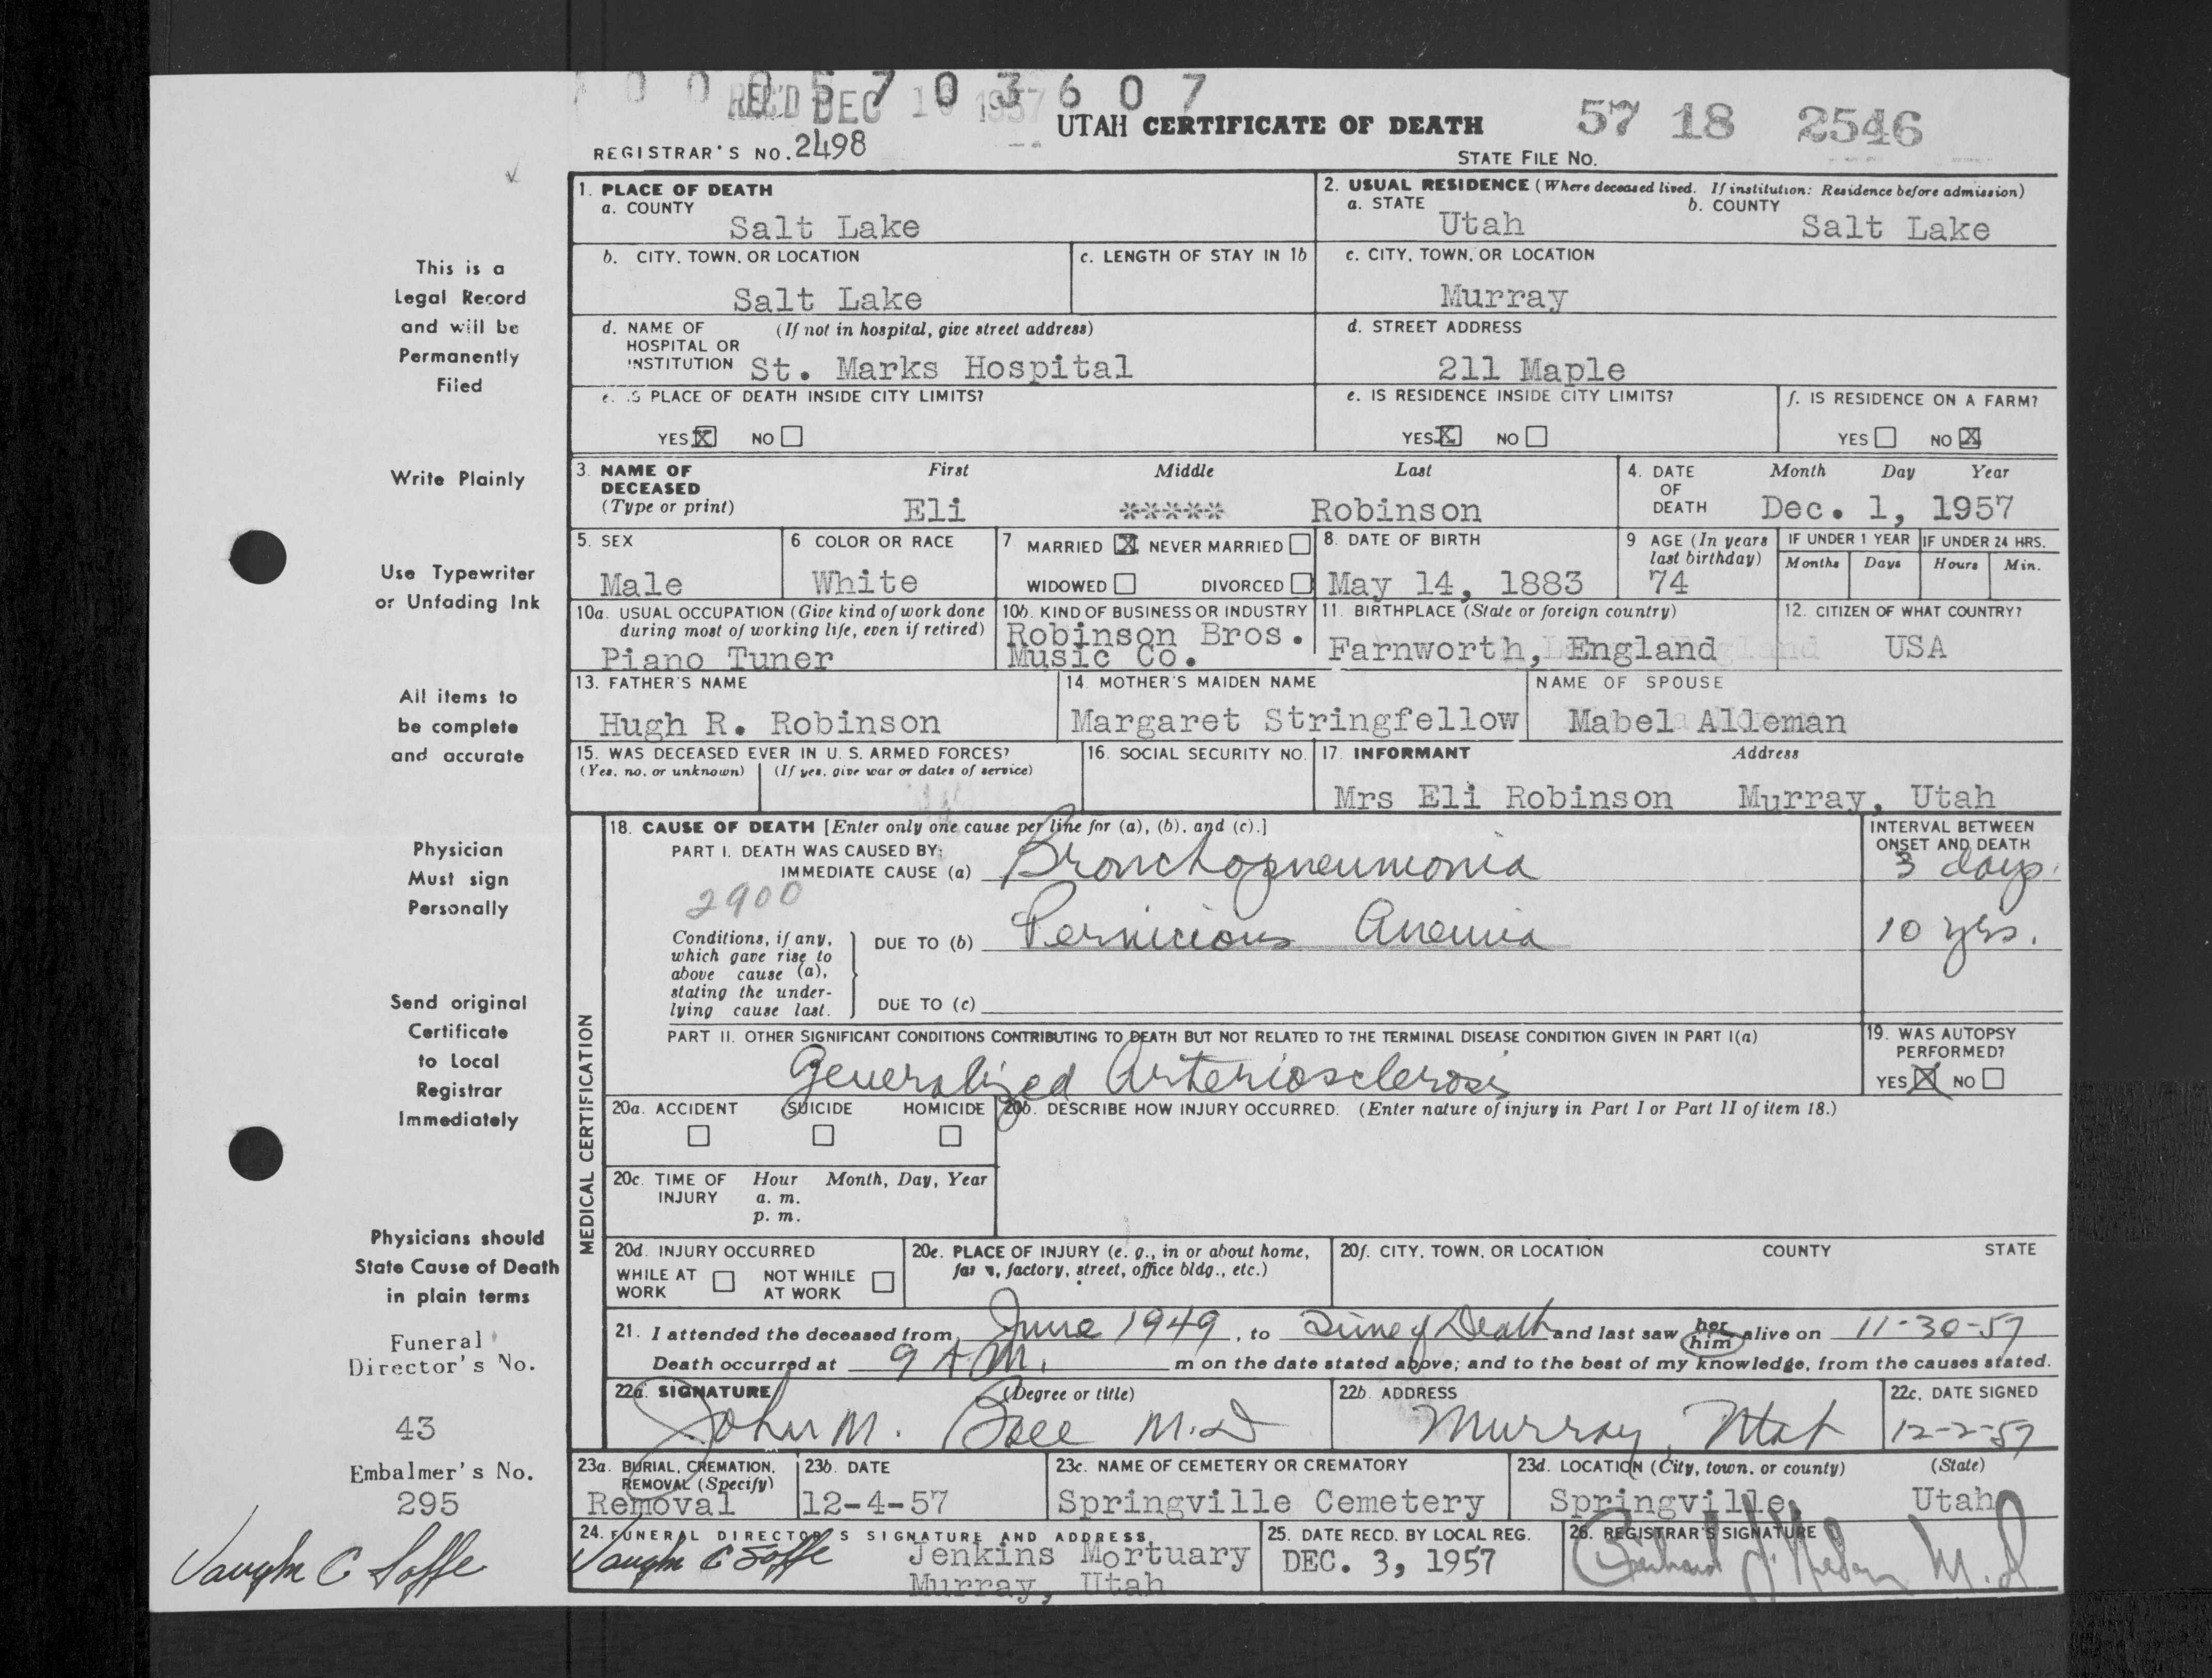 0 0 0 5 7 0 3 6 0 7
REC'D DEC 10 1957
UTAH CERTIFICATE OF DEATH
57 18 2546
REGISTRAR'S NO. 2498
STATE FILE NO.
This is a
Legal Record
and will be
Permanently
Filed
Write Plainly
Use Typewriter
or Unfading Ink
All items to
be complete
and accurate
Physician
Must sign
Personally
Send original
Certificate
to Local
Registrar
Immediately
Physicians should
State Cause of Death
in plain terms
Funeral
Director's No.
43
Embalmer's No.
295
Vaughn C Soffe
1. PLACE OF DEATH
a. COUNTY
Salt Lake
2. USUAL RESIDENCE (Where deceased lived. If institution: Residence before admission)
a. STATE b. COUNTY
Utah Salt Lake
b. CITY, TOWN, OR LOCATION
Salt Lake
c. LENGTH OF STAY IN 1b
c. CITY, TOWN, OR LOCATION
Murray
d. NAME OF (If not in hospital, give street address)
HOSPITAL OR
INSTITUTION St. Marks Hospital
d. STREET ADDRESS
211 Maple
e. IS PLACE OF DEATH INSIDE CITY LIMITS?
YES X NO
e. IS RESIDENCE INSIDE CITY LIMITS?
YES X NO
f. IS RESIDENCE ON A FARM?
YES NO X
3. NAME OF First Middle Last
DECEASED
(Type or print) Eli ***** Robinson
4. DATE Month Day Year
OF
DEATH Dec. 1, 1957
5. SEX
Male
6 COLOR OR RACE
White
7 MARRIED X NEVER MARRIED
WIDOWED DIVORCED
8. DATE OF BIRTH
May 14, 1883
9 AGE (In years
last birthday)
74
IF UNDER 1 YEAR IF UNDER 24 HRS.
Months Days Hours Min.
10a. USUAL OCCUPATION (Give kind of work done
during most of working life, even if retired)
Piano Tuner
10b. KIND OF BUSINESS OR INDUSTRY
Robinson Bros.
Music Co.
11. BIRTHPLACE (State or foreign country)
Farnworth, England
12. CITIZEN OF WHAT COUNTRY?
USA
13. FATHER'S NAME
Hugh R. Robinson
14. MOTHER'S MAIDEN NAME
Margaret Stringfellow
NAME OF SPOUSE
Mabel Alleman
15. WAS DECEASED EVER IN U. S. ARMED FORCES?
(Yes, no, or unknown) (If yes, give war or dates of service)
16. SOCIAL SECURITY NO.
17. INFORMANT Address
Mrs Eli Robinson Murray, Utah
MEDICAL CERTIFICATION
18. CAUSE OF DEATH [Enter only one cause per line for (a), (b), and (c).]
PART I. DEATH WAS CAUSED BY:
IMMEDIATE CAUSE (a) Bronchopneumonia
INTERVAL BETWEEN
ONSET AND DEATH
3 days.
2900
Conditions, if any,
which gave rise to
above cause (a),
stating the under-
lying cause last.
DUE TO (b) Pernicious Anemia
10 yrs.
DUE TO (c)
PART II. OTHER SIGNIFICANT CONDITIONS CONTRIBUTING TO DEATH BUT NOT RELATED TO THE TERMINAL DISEASE CONDITION GIVEN IN PART I(a)
Generalized Arteriosclerosis
19. WAS AUTOPSY
PERFORMED?
YES X NO
20a. ACCIDENT SUICIDE HOMICIDE
20b. DESCRIBE HOW INJURY OCCURRED. (Enter nature of injury in Part I or Part II of item 18.)
20c. TIME OF Hour Month, Day, Year
INJURY a. m.
p. m.
20d. INJURY OCCURRED
WHILE AT NOT WHILE
WORK AT WORK
20e. PLACE OF INJURY (e. g., in or about home,
farm, factory, street, office bldg., etc.)
20f. CITY, TOWN, OR LOCATION COUNTY STATE
21. I attended the deceased from June 1949, to Time of Death and last saw her him alive on 11-30-57
Death occurred at 9 A.M. m on the date stated above; and to the best of my knowledge, from the causes stated.
22a. SIGNATURE (Degree or title)
John M. M.D
22b. ADDRESS
Murray, Utah
22c. DATE SIGNED
12-2-57
23a. BURIAL, CREMATION,
REMOVAL (Specify)
Removal
23b. DATE
12-4-57
23c. NAME OF CEMETERY OR CREMATORY
Springville Cemetery
23d. LOCATION (City, town, or county) (State)
Springville, Utah
24. FUNERAL DIRECTOR'S SIGNATURE AND ADDRESS
Vaughn C Soffe Jenkins Mortuary
Murray, Utah
25. DATE RECD. BY LOCAL REG.
DEC. 3, 1957
26. REGISTRAR'S SIGNATURE
M.D